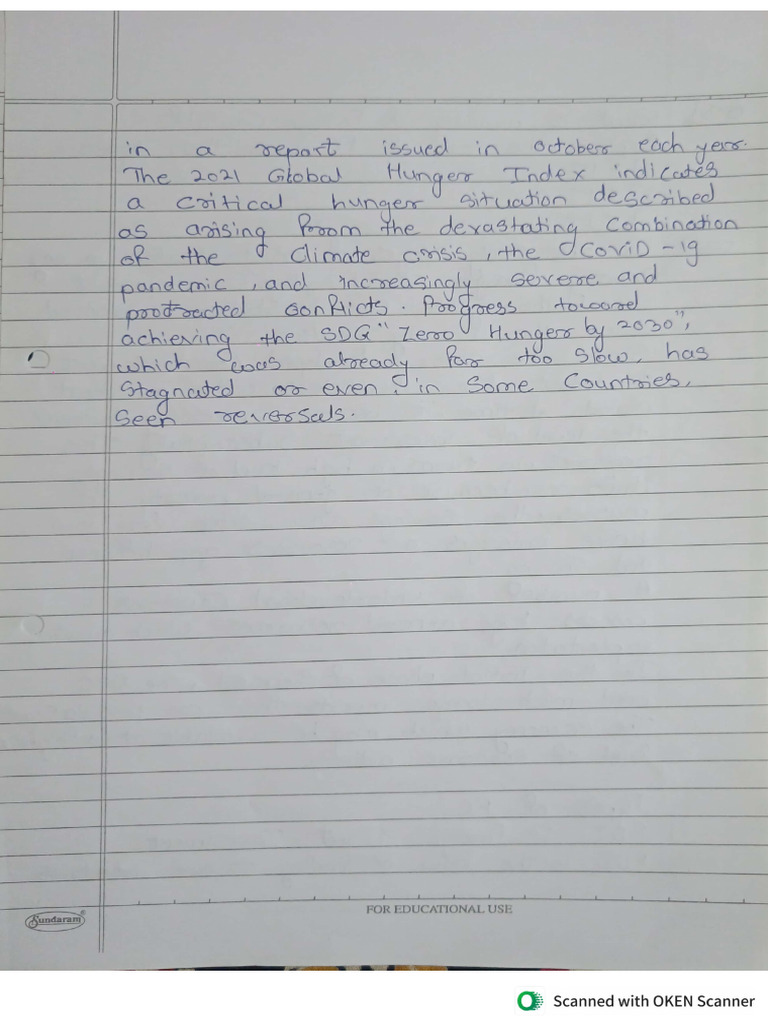 in a report issued in october each year.
The 2021 Global Hunger Index indicates
a critical hunger situation described
as arising from the devastating combination
of the climate crisis, the COVID-19
pandemic, and increasingly severe and
protracted conflicts. Progress toward
achieving the SDG "Zero Hunger by 2030",
which was already far too slow, has
stagnated or even, in some countries,
seen reversals.
Sundaram®
FOR EDUCATIONAL USE
Scanned with OKEN Scanner